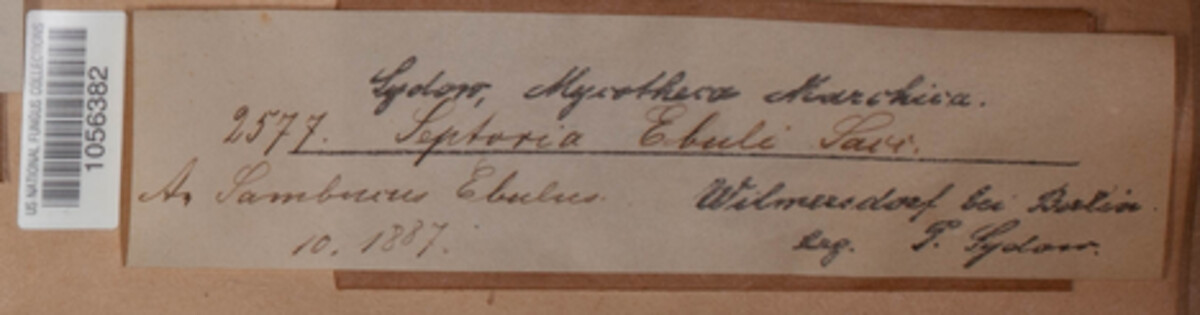 US NATIONAL FUNGUS COLLECTIONS
1056382
Sydow, Mycotheca Marchica.
2577. Septoria Ebuli Sacc.
An Sambucus Ebulus. Wilmersdorf bei Berlin.
10. 1887. leg. P. Sydow.